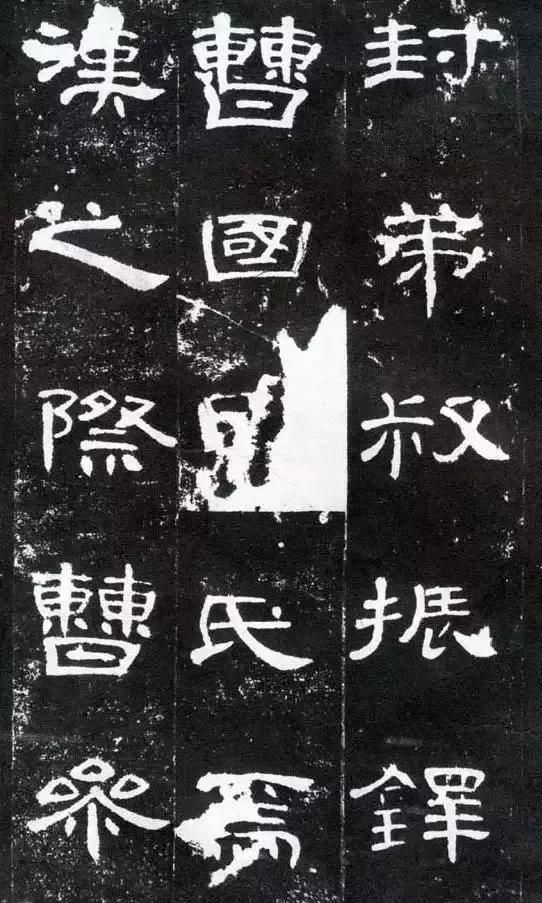 封弟叔振鐸
曹國氏焉
漢之際曹參